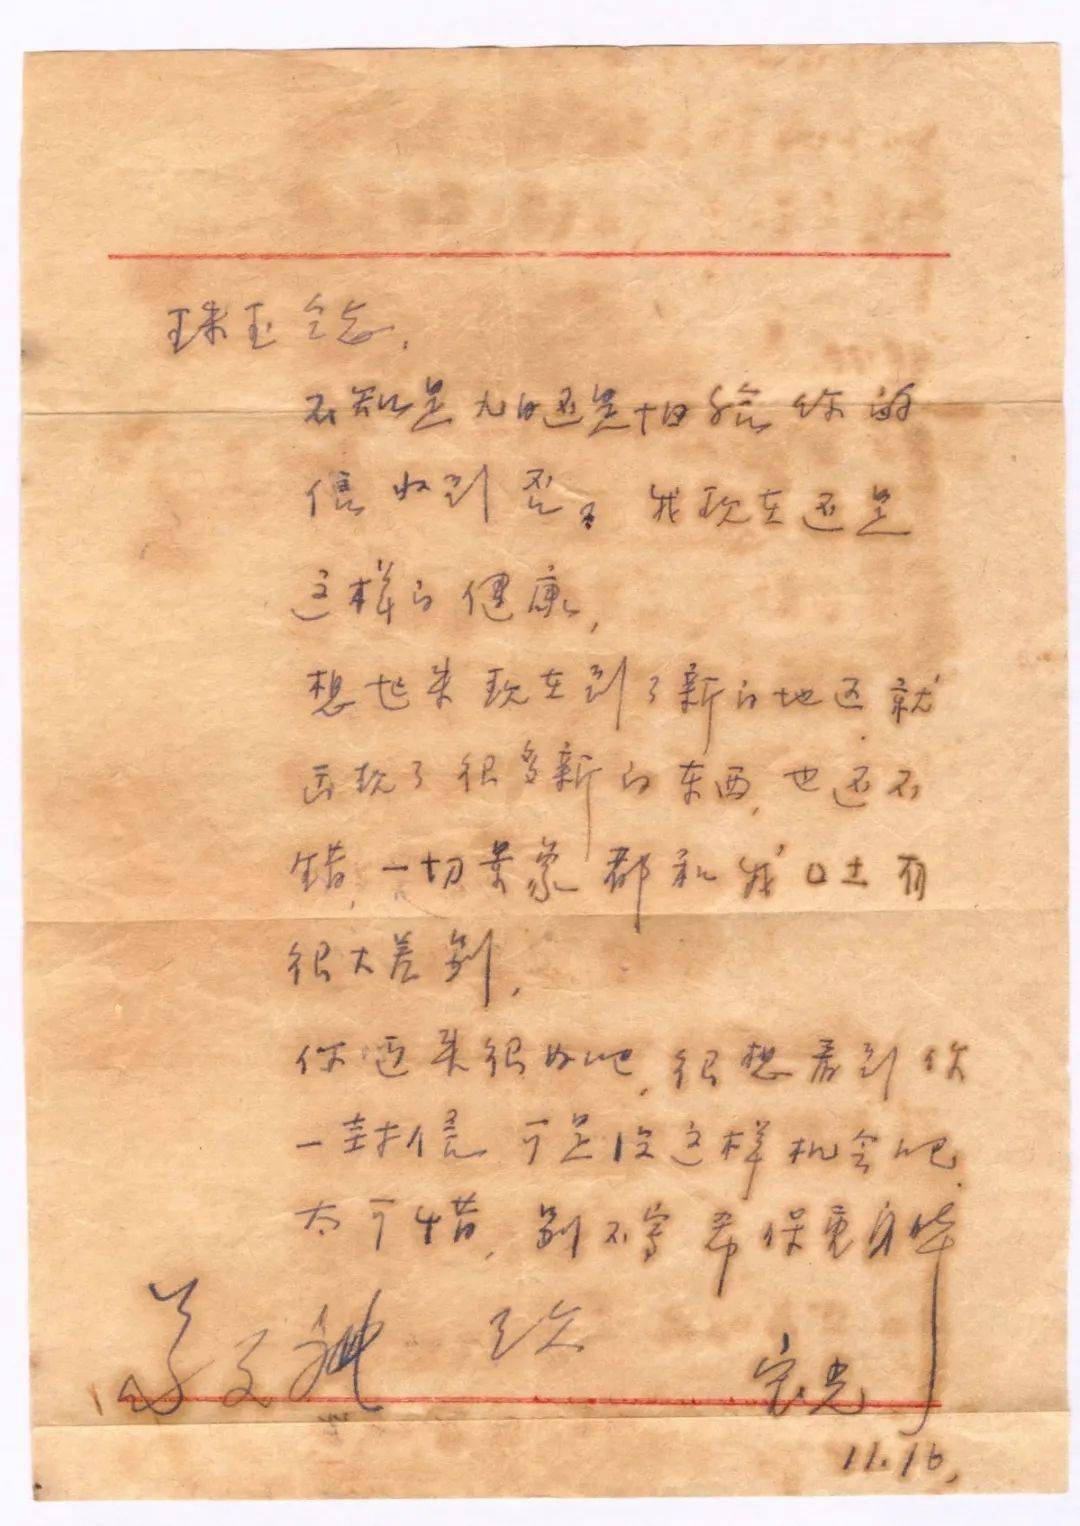 珠玉念.
不知是九日还是十日给你的
信收到否。我现在还是
这样的健康,
想起来现在到了新的地区.就
出现了很多新的东西,也还不
错,一切景象都和我口土有
很大差别,
你近来很好吧,很想看到你
一封信 可是没这样机会吧.
太可惜,别不写 希保重身体
致
宗光
11.16,